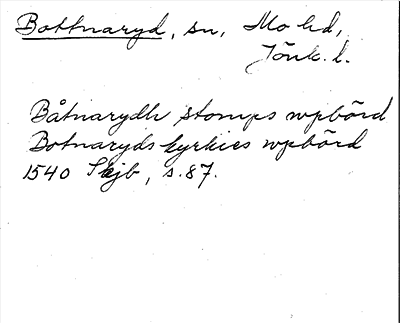 Bottnaryd, sn, Mo hd,
Jönk. l.
Båtnarydh stomps wpbörd
Botnaryds kyrkies wpbörd
1540 Skjb, s. 87.